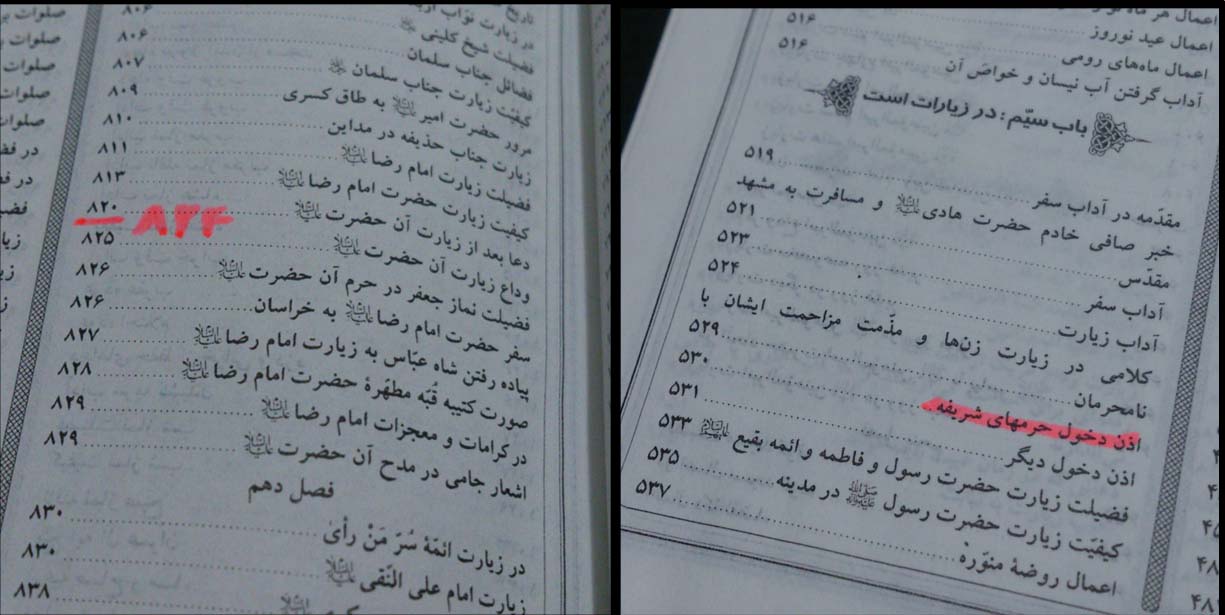 اعمال عید نوروز
اعمال ماه‌های رومی ۵۱۶
آداب گرفتن آب نیسان و خواصّ آن ۵۱۶
باب سیّم: در زیارات است
مقدّمه در آداب سفر ۵۱۹
خبر صافی خادم حضرت هادی علیه‌السلام و مسافرت به مشهد
مقدّس ۵۲۱
آداب سفر ۵۲۳
آداب زیارت ۵۲۴
کلامی در زیارت زن‌ها و مذّمت مزاحمت ایشان با
نامحرمان ۵۲۹
اذن دخول حرمهای شریفه ۵۳۰
اذن دخول دیگر ۵۳۱
فضیلت زیارت حضرت رسول و فاطمه و ائمه بقیع علیهم‌السلام ۵۳۳
کیفیّت زیارت حضرت رسول ﷺ در مدینه ۵۳۵
اعمال روضهٔ منوّره ۵۳۷
در زیارت نوّاب
فضیلت شیخ کلینی ۸۰۶
فضائل جناب سلمان ۸۰۶
کیفیّت زیارت جناب سلمان ۸۰۷
مرور حضرت امیر علیه‌السلام به طاق کسری ۸۰۹
زیارت جناب حذیفه در مداین ۸۱۰
فضیلت زیارت امام رضا علیه‌السلام ۸۱۱
کیفیت زیارت حضرت امام رضا علیه‌السلام ۸۱۳
دعا بعد از زیارت آن حضرت علیه‌السلام ۸۲۰ ۸۲۴
وداع زیارت آن حضرت علیه‌السلام ۸۲۵
فضیلت نماز جعفر در حرم آن حضرت علیه‌السلام ۸۲۶
سفر حضرت امام رضا علیه‌السلام به خراسان ۸۲۶
پیاده رفتن شاه عبّاس به زیارت امام رضا علیه‌السلام ۸۲۷
صورت کتیبه قُبّه مطهّرهٔ حضرت امام رضا علیه‌السلام ۸۲۸
در کرامات و معجزات امام رضا علیه‌السلام ۸۲۹
اشعار جامی در مدح آن حضرت علیه‌السلام ۸۲۹
فصل دهم
در زیارت ائمّهٔ سُرَّ مَنْ رأی ۸۳۰
زیارت امام علی النّقی علیه‌السلام ۸۳۰
۸۳۸